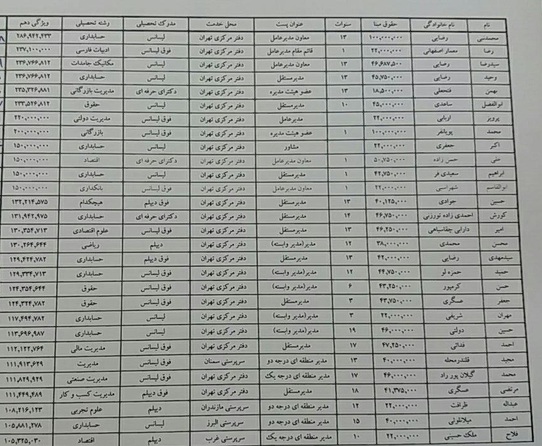 نام نام خانوادگی حقوق مبنا سنوات عنوان پست محل خدمت مدرک تحصیلی رشته تحصیلی ویژگی دهم
محمدتقی رضایی ۱۰۰,۰۰۰,۰۰۰ ۱۳ معاون مدیرعامل دفتر مرکزی تهران لیسانس حسابداری
رضا معمار اصفهانی ۲۲,۰۰۰,۰۰۰ ۱ قائم مقام مدیرعامل دفتر مرکزی تهران فوق لیسانس ادبیات فارسی ۲۳۷,۱۰۰,۰۰۰
سیدرضا رضایی ۱۳ معاون مدیرعامل دفتر مرکزی تهران لیسانس مکانیک جامدات ۲۳۶,۷۶۶,۸۱۲
وحید رضایی ۴۵,۷۵۰,۰۰۰ ۱۳ مدیرمستقل دفتر مرکزی تهران لیسانس حسابداری ۲۳۶,۷۶۶,۸۱۲
بهمن فتحعلی ۱۸,۵۰۰,۰۰۰ ۱۳ عضو هیئت مدیره دفتر مرکزی تهران دکترای حرفه ای مدیریت بازرگانی
ابوالفضل ساعدی ۴۵,۰۰۰,۰۰۰ ۱۰ مدیرمستقل دفتر مرکزی تهران لیسانس حقوق
پرویز اربابی ۲۲,۰۰۰,۰۰۰ مدیرعامل دفتر مرکزی تهران فوق لیسانس مدیریت دولتی ۲۲۰,۰۰۰,۰۰۰
محمد ۱۰۰,۰۰۰,۰۰۰ ۱ عضو هیئت مدیره دفتر مرکزی تهران فوق لیسانس بازرگانی ۲۰۰,۰۰۰,۰۰۰
اکبر جعفری ۲۲,۰۰۰,۰۰۰ مشاور دفتر مرکزی تهران لیسانس حسابداری ۱۵۰,۰۰۰,۰۰۰
علی حسن زاده ۵۰,۷۵۰,۰۰۰ ۱ معاون مدیرعامل دفتر مرکزی تهران دکترای حرفه ای اقتصاد ۱۵۰,۰۰۰,۰۰۰
ابراهیم سعیدی فر ۴۲,۷۵۰,۰۰۰ ۱ مدیرمستقل دفتر مرکزی تهران لیسانس حسابداری ۱۵۰,۰۰۰,۰۰۰
ابوالقاسم ۲۲,۰۰۰,۰۰۰ ۱ معاون مدیرعامل دفتر مرکزی تهران فوق لیسانس بانکداری ۱۵۰,۰۰۰,۰۰۰
حسین جوادی ۴۰,۱۲۵,۰۰۰ ۱۳ مدیرمستقل دفتر مرکزی تهران فوق دیپلم هیچکدام ۱۳۲,۲۱۴,۵۷۵
کورش احمدی زاده نوروزی ۴۶,۷۵۰,۰۰۰ ۱۴ مدیرمستقل دفتر مرکزی تهران دکترای حرفه ای حسابداری ۱۳۱,۹۴۲,۹۷۵
امیر ۴۶,۲۵۰,۰۰۰ ۱۳ مدیرمستقل دفتر مرکزی تهران فوق لیسانس علوم اقتصادی ۱۳۰,۳۵۴,۷۱۳
محسن محمدی ۳۸,۰۰۰,۰۰۰ ۱۲ مدیر(مدیر وابسته) دفتر مرکزی تهران دیپلم ریاضی ۱۳۰,۲۶۴,۶۴۴
سیدمهدی رضایی ۴۲,۰۰۰,۰۰۰ ۱۳ مدیرمستقل دفتر مرکزی تهران فوق دیپلم حسابداری ۱۲۹,۴۲۴,۷۸۲
حمید حمزه لو ۴۴,۷۵۰,۰۰۰ ۱۲ مدیر(مدیر وابسته) دفتر مرکزی تهران لیسانس حسابداری ۱۲۹,۳۳۴,۷۱۳
حسن کرمپور ۴۳,۲۵۰,۰۰۰ ۶ مدیر(مدیر وابسته) دفتر مرکزی تهران فوق لیسانس حقوق ۱۲۴,۳۵۴,۶۴۴
جعفر عسگری ۴۳,۷۵۰,۰۰۰ ۳ مدیرمستقل دفتر مرکزی تهران فوق لیسانس حقوق ۱۲۴,۳۲۴,۷۸۲
مهران شریفی ۲۲,۰۰۰,۰۰۰ ۳ مدیر(مدیر وابسته) دفتر مرکزی تهران لیسانس حسابداری ۱۱۷,۴۹۴,۷۸۲
حسین دولتی ۴۶,۰۰۰,۰۰۰ ۱۹ مدیر(مدیر وابسته) دفتر مرکزی تهران لیسانس حسابداری ۱۱۳,۶۹۶,۹۸۷
احمد فدائی ۴۷,۲۵۰,۰۰۰ ۱۷ مدیرمستقل دفتر مرکزی تهران فوق لیسانس مدیریت مالی ۱۱۲,۱۲۲,۷۶۴
مجید قلندرمحله ۴۰,۰۰۰,۰۰۰ ۱۳ مدیر منطقه ای درجه دو سرپرستی سمنان فوق لیسانس مدیریت ۱۱۱,۹۱۳,۶۲۹
محمد گلابی پور راد ۴۶,۰۰۰,۰۰۰ ۱۷ مدیر منطقه ای درجه یک دفتر مرکزی تهران لیسانس مدیریت صنعتی ۱۱۱,۸۲۹,۹۲۹
مرتضی عسگری ۴۱,۳۷۵,۰۰۰ ۱۸ مدیرمستقل دفتر مرکزی تهران فوق دیپلم مدیریت کسب و کار ۱۱۱,۴۴۹,۴۸۹
عبداله ظرافت ۲۲,۰۰۰,۰۰۰ ۱۲ مدیر منطقه ای درجه دو سرپرستی مازندران دیپلم علوم تجربی ۱۰۸,۲۱۶,۱۲۳
احمد ۴۰,۰۰۰,۰۰۰ ۱۵ مدیر منطقه ای درجه دو سرپرستی البرز لیسانس حسابداری ۱۰۵,۸۸۱,۲۷۸
فلاح ملک حسینی ۲۲,۰۰۰,۰۰۰ ۱۰ مدیر منطقه ای درجه یک سرپرستی غرب دیپلم اقتصاد ۱۰۵,۳۲۵,۰۳۰